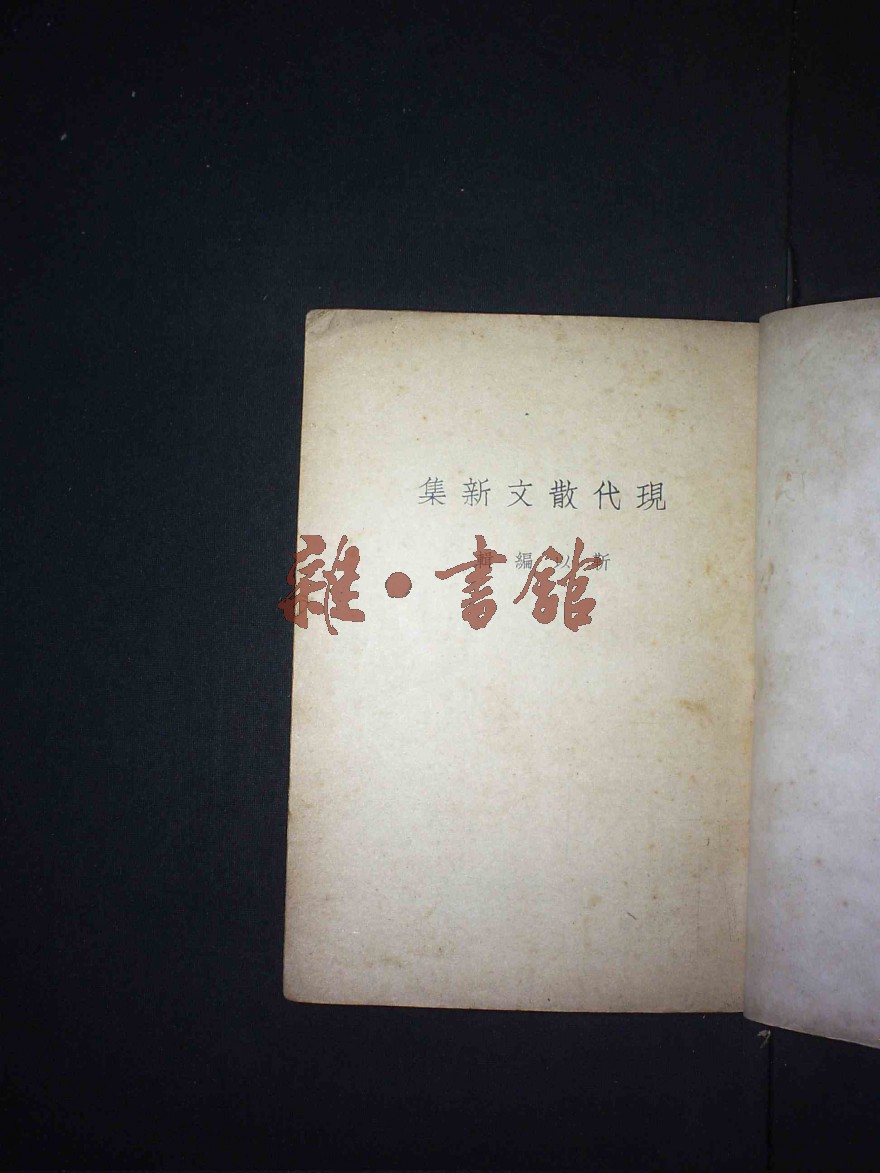 現代散文新集
靳以編輯
雜·書館